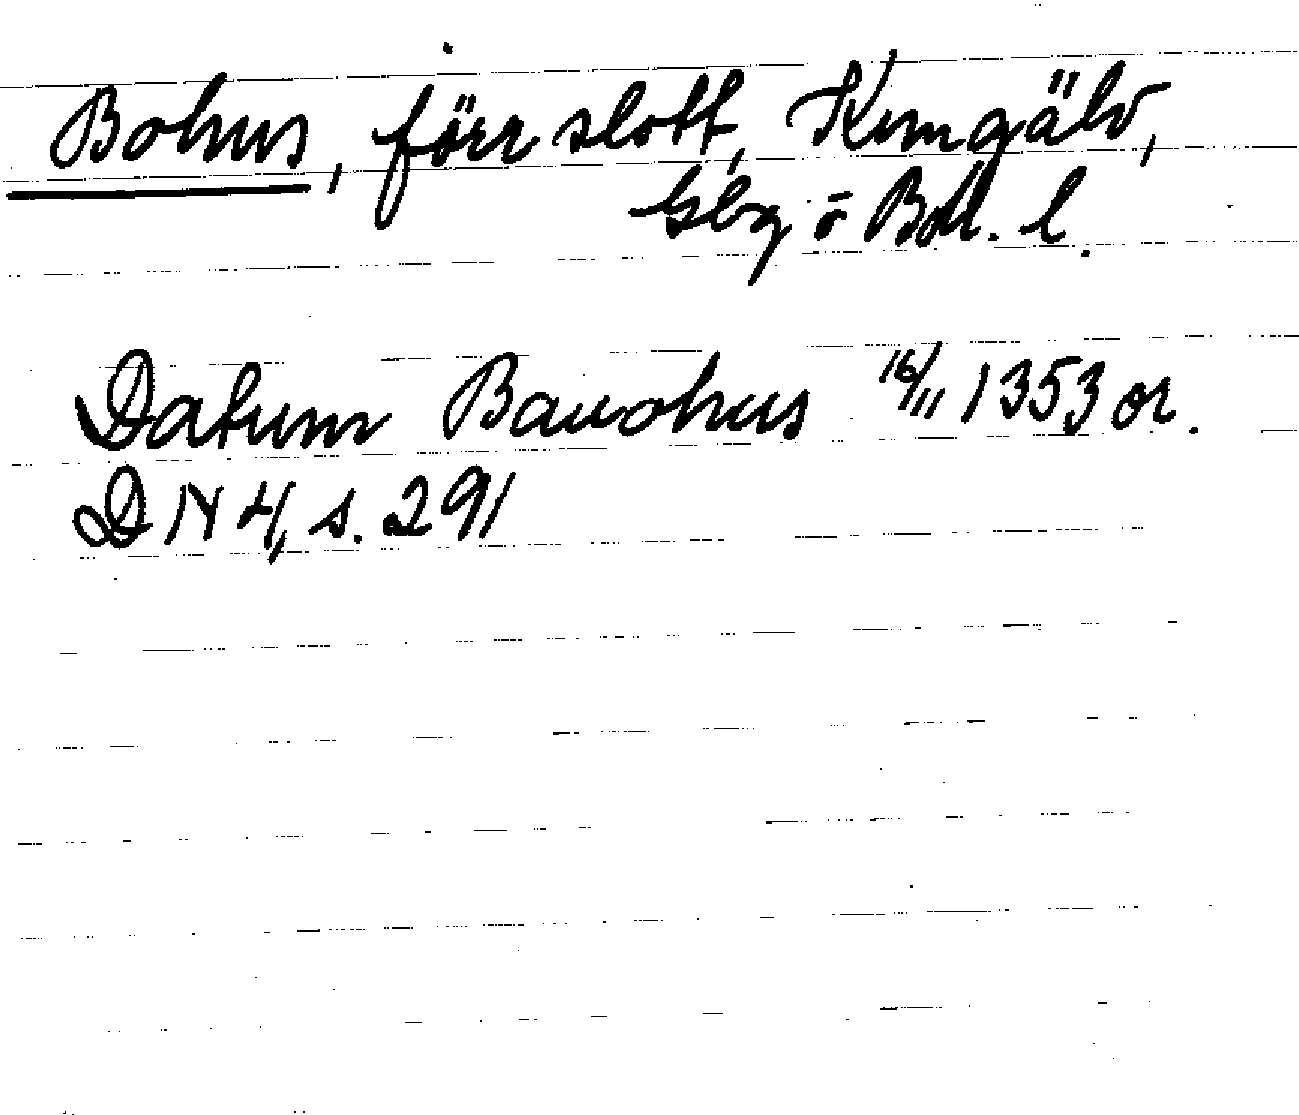 Bohus, förr slott, Kungälv,
Gbg o Boh. l.
Datum Bauohus 16/11 1353 or.
DN 4, s. 291